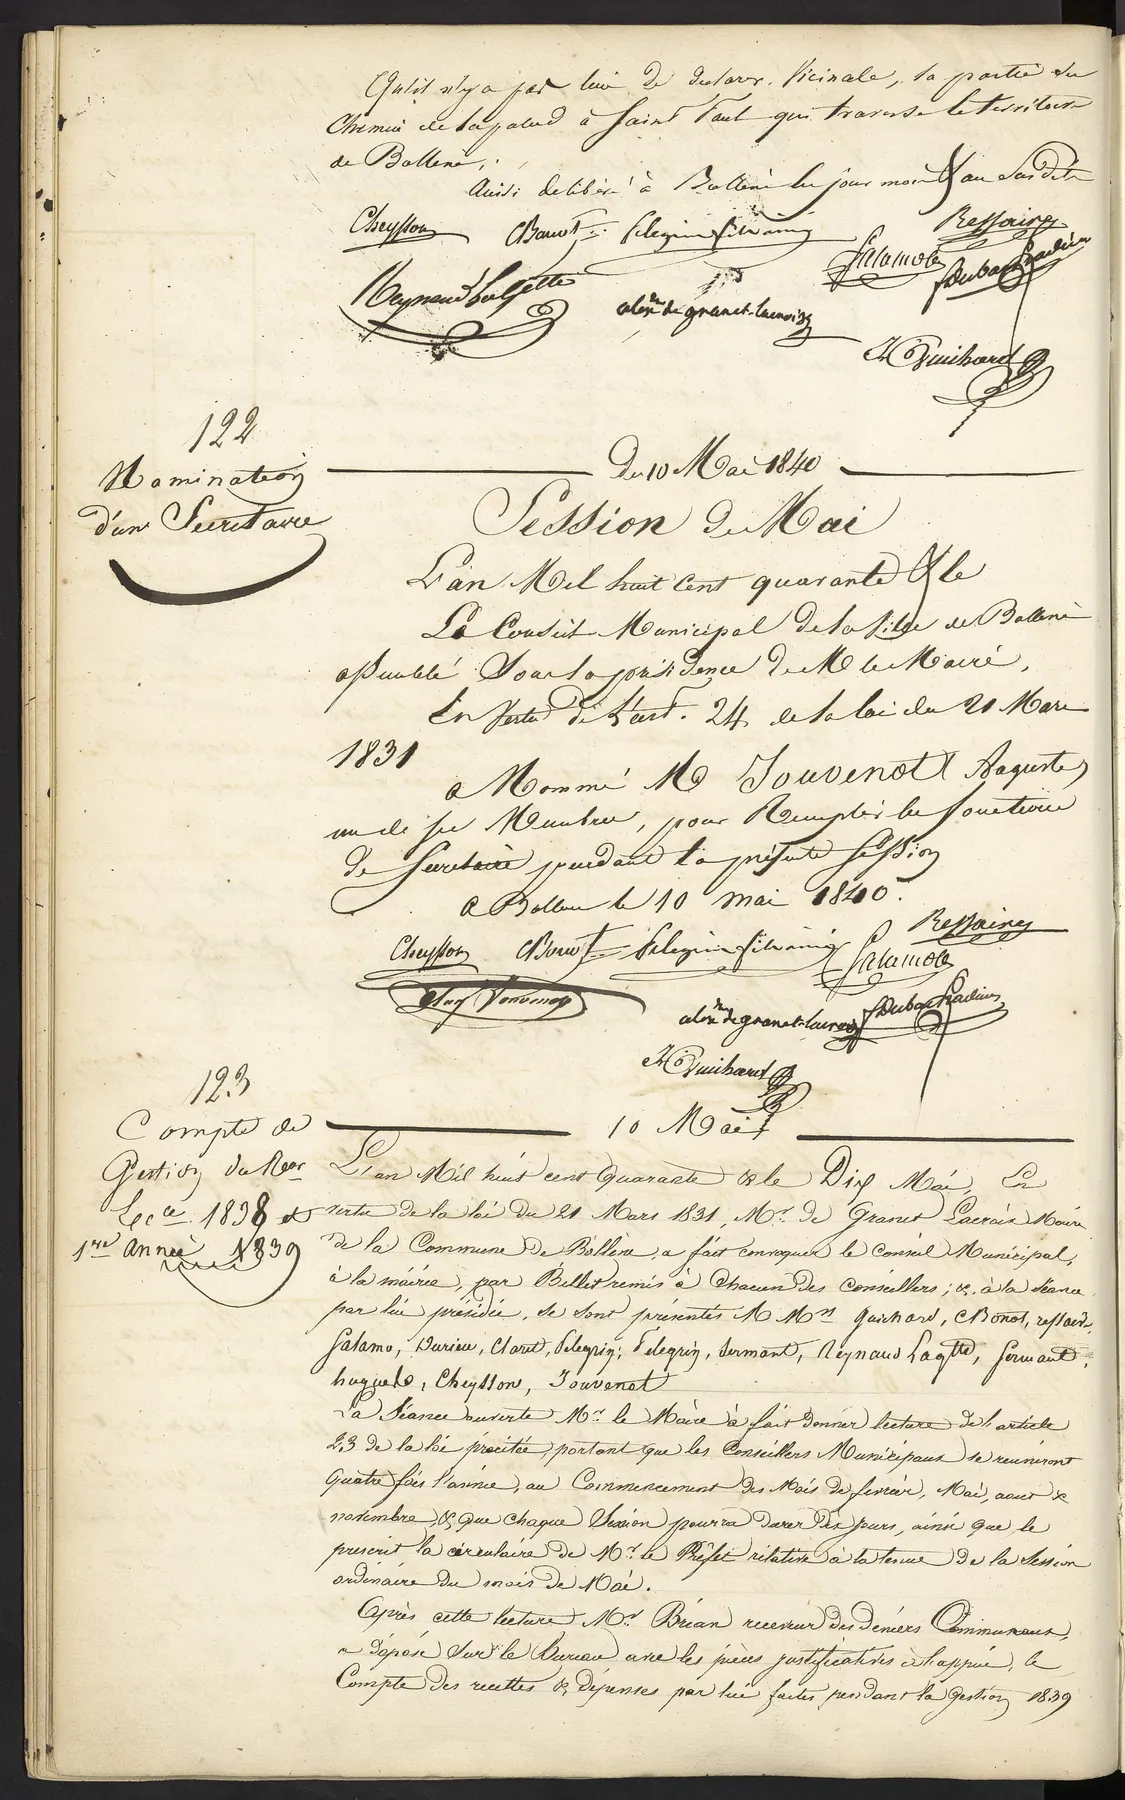 Qu'il n'y a pas lieu de declarer Vicinale, la partie du
Chemin de Lapalud à Saint Paul qui traverse le territoire
de Bollene,.
Ainsi delibéré à Bollene les jour mois & an susdits
Cheysson Bonot Pelegrin Ressaire
Salamo
Reynaud Lagette alexdre de granet-lacroix
H Guichard
122
Nomination
d'un Secretaire
Du 10 Mai 1840
Session de Mai
L'an Mil huit cent quarante & le
Le Conseil Municipal de la Ville de Bollene
assemblé sous la présidence de M le Maire,
En Vertu de l'art. 24 de la loi du 21 Mars
1831
a Nommé M Jouvenot Auguste
un de ses Membres, pour Remplir les fonctions
de Secretaire pendant la présente Session
a Bollene le 10 mai 1840.
Cheysson Bonot Pelegrin Ressaire
Salamo
Aug Jouvenot
alexdre de granet-lacroix
H Guichard
10 Mai
123
Compte de
Gestion du Recr
Ecce 1838 et
1ere Année 1839
L'an Mil huit cent Quarante & le Dix Mai, En
vertu de la loi du 21 Mars 1831, Mr. de Granet Lacroix Maire
de la Commune de Bollene, a fait convoquer le Conseil Municipal,
à la mairie, par Billet remis à Chacun des conseillers; &, à la séance
par lui présidée, se sont présentés M Mrs Guichard, Bonot, ressaire,
Salamo, Durieu, Claret, Pelegrin, Pelegrin, Sermant, Reynaud Lagtte, fermant,
huguet, Cheysson, Jouvenot
La Séance ouverte Mr. le Maire à fait donner lecture de l'article
23 de la loi précitée, portant que les Conseillers Municipaux se réuniront
quatre fois l'année, au Commencement des Mois de fevrier, Mai, aout &
novembre, & que chaque Session pourra durer dix jours, ainsi que le
prescrit la circulaire de Mr. le Préfet relative à la tenue de la Session
ordinaire du mois de Mai.
Après cette lecture Mr. Brian receveur des déniers Communaux,
a déposé sur le Bureau avec les pièces justificatives à l'appui, le
Compte des recettes & dépenses par lui faites pendant la Gestion 1839